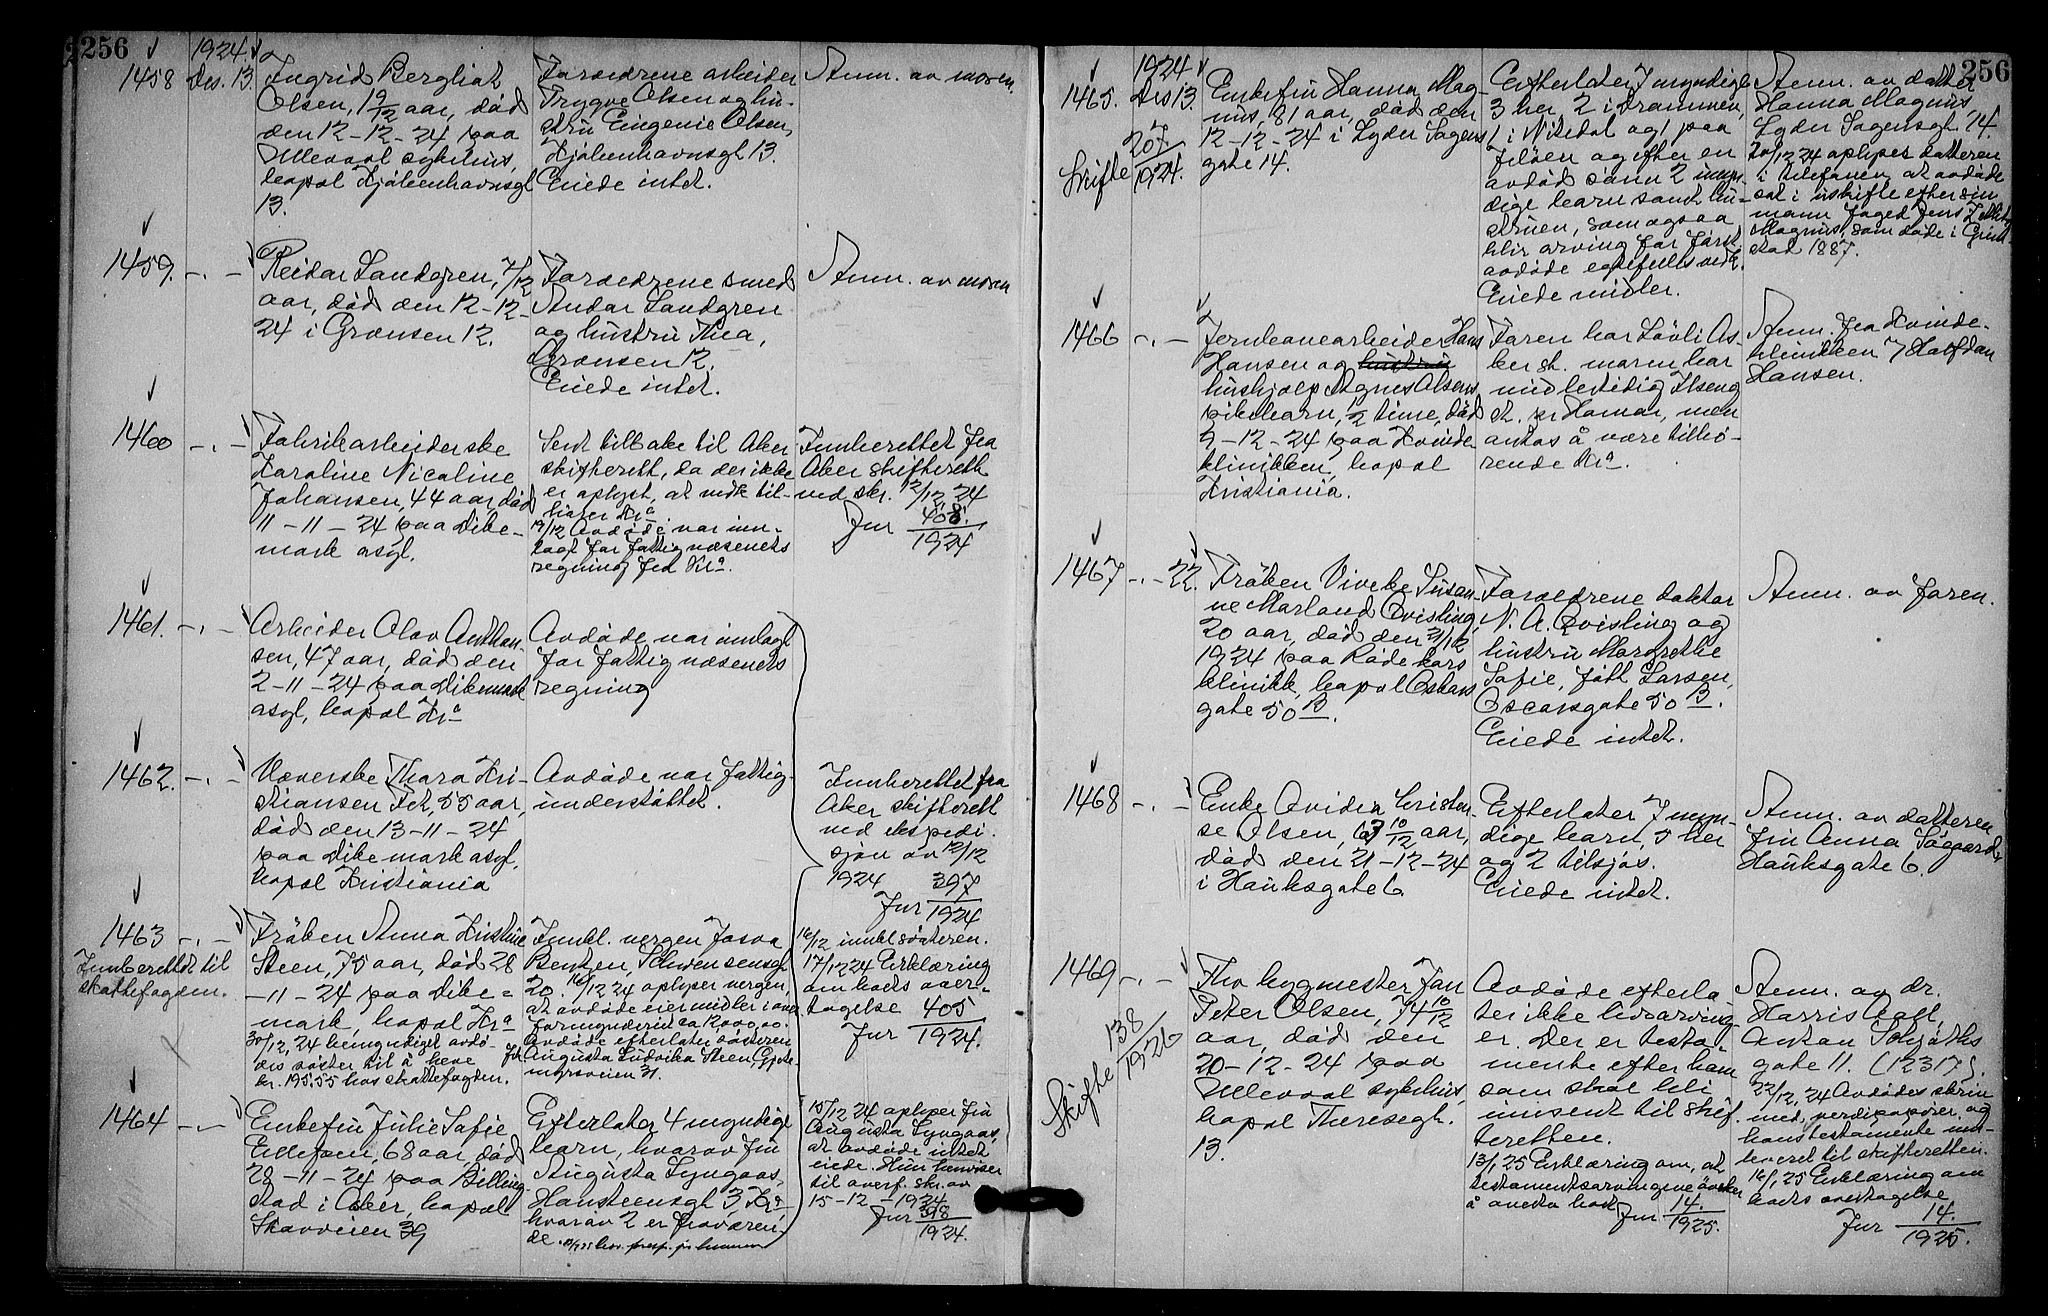 256
1924.
1458 Des. 13. Ingrid Bergliot
Olsen, 1 9/12 aar, død
den 12-12-24 paa
Ullevaal sykehus,
bopæl Kjøbenhavnsgt
13.
Forældrene arbeider
Trygve Olsen og hu-
stru Eugenie Olsen,
Kjøbenhavnsgt 13.
Eiede intet.
Anm. av moren.
1459. -.- Reidar Landgren, 7/12
aar, død den 12-12-
24 i Grænsen 12.
Forældrene smed
Andor Landgren
og hustru Thea,
Grænsen 12.
Eiede intet.
Anm. av moren
1460 -.- Fabrikarbeiderske
Karoline Nicoline
Johansen, 44 aar, død
11-11-24 paa Dike-
mark asyl.
Sent tilbake til Aker
skifterett, da der ikke
er oplyst, at vedk. til-
hører Kr.a
19/12 Avdøde var inn-
lagt for fattigvæsenets
regning fra Kr.a.
Innberettet fra
Aker skifterett
ved skr. 12/12 24
Jnr 408
1924
1461. -.- Arbeider Olav Anthon-
sen, 47 aar, død den
2-11-24 paa Dikemark
asyl, bopæl Kr.a
Avdøde var innlagt
for fattigvæsenets
regning
1462. -.- Væverske Thora Kri-
stiansen Fet, 55 aar,
død den 13-11-24
paa Dikemark asyl,
bopæl Kristiania
Avdøde var fattig-
understøttet.
Innberettet fra
Aker skifterett
ved ekspedi-
sjon av 12/12
1924 397
Jnr 1924
1463 -.- Frøken Anna Kristine
Steen, 75 aar, død 28
-11-24 paa Dike=
mark, bopæl Kr.a
30/12 24 bemyndiget avdø-
des søster til å heve
kr. 195.55 hos skattefogden.
Innberettet til
skattefogden.
Innkl. vergen
Bentzen, Schwensensgt
20. 16/12 24 oplyser vergen,
at avdøde eier midler i over
formynderiet ca 12,000,00.
Avdøde efterlater søsteren
Augusta Ludvika Steen,
31.
16/12 innkl. søsteren.
17/12 24 Erklæring
om bods over-
tagelse 405
Jnr 1924.
1464 -.- Enkefru Julie Sofie
Ellefsen, 68 aar, død
28-11-24 paa Billing-
stad i Asker, bopæl
Skovveien 39
Efterlater 4 myndige
barn, hvorav fru
Augusta Lyngaas,
Hansteensgt 3, Kr.a
hvorav 2 er fraværen-
de.
15/12 24 oplyser fru
Augusta Lyngaas,
at avdøde intet
eiede. Hun henviser
til overf. skr. av
15-12-1924
Jnr 398
1924.
256
1924
1465. Des 13. Enkefru Hanna Mag-
nus, 81 aar, død den
12-12-24 i Lyder Sagens
gate 14.
Skifte 207
1924.
Efterlater 7 myndige
3 her 2 i Drammen,
1 i Nitedal og 1 paa
Jeløen og efter en
avdød sønn 2 myn-
dige barn samt hu-
struen, som ogsaa
blir arving for først
avdøde egtefelles vedk.
Eiede midler.
Anm. av datter
Hanna Magnus,
Lyder Sagensgt. 14
20/12 24 oplyser datteren
i telefonen, at avdøde
sat i uskifte efter sin
mann foged Jens
Magnus, som døde i Grim
stad 1887.
1466 -.- Jernbanearbeider Hans
Hansen og hustru
hushjælp Agnes Olsens
pikebarn, 1/2 time, død
9-12-24 paa Kvinde
klinikken, bopæl
Kristiania.
Faren bor Løvli As-
ker st. moren bor
midlertidig Ilseng
st. pr Hamar, men
antas å være tilhø-
rende Kr.a.
Anm. fra Kvinde-
klinikken v/ Halfdan
Hansen.
1467 -.- 22. Frøken Viveke Susan-
ne Morland Qvisling,
20 aar, død den 21/12
1924 paa Røde kors
klinikk, bopæl Oskars
gate 50 B.
Forældrene doktor
N. A. Qvisling og
hustru Margrethe
Sofie, født Larsen,
Oscarsgate 50 B.
Eiede intet.
Anm. av faren.
1468 -.- Enke Ovidia Kristen-
se Olsen, 67 10/12 aar,
død den 21-12-24
i Hauksgate 6
Efterlater 7 myn-
dige barn, 5 her
og 2 tilsjøs.
Eiede intet.
Anm. av datteren
fru Anna Søgaard,
Hauksgate 6.
1469 -.- Fhv byggmester Jan
Peter Olsen, 74 10/12
aar, død den
20-12-24 paa
Ullevaal sykehus,
bopæl Theresegt.
13.
Skifte 138
1926
Avdøde efterla-
ter ikke livsarving-
er. Der er testa-
mente efter ham
som skal bli
innsent til skif-
teretten.
13/1 25 Erklæring om, at
testamentsarvingene ønsker
å overta bod
Jnr 14.
1925.
Anm. av dr.
Harris Aall,
Anton Schjøths
gate 11. (12317).
22/12 24 Avdødes skrin
med verdipapirer, og
hans testamente inn-
leveret til skifteretten.
16/1 25 Erklæring om
bods overtagelse
Jnr 14.
1925.